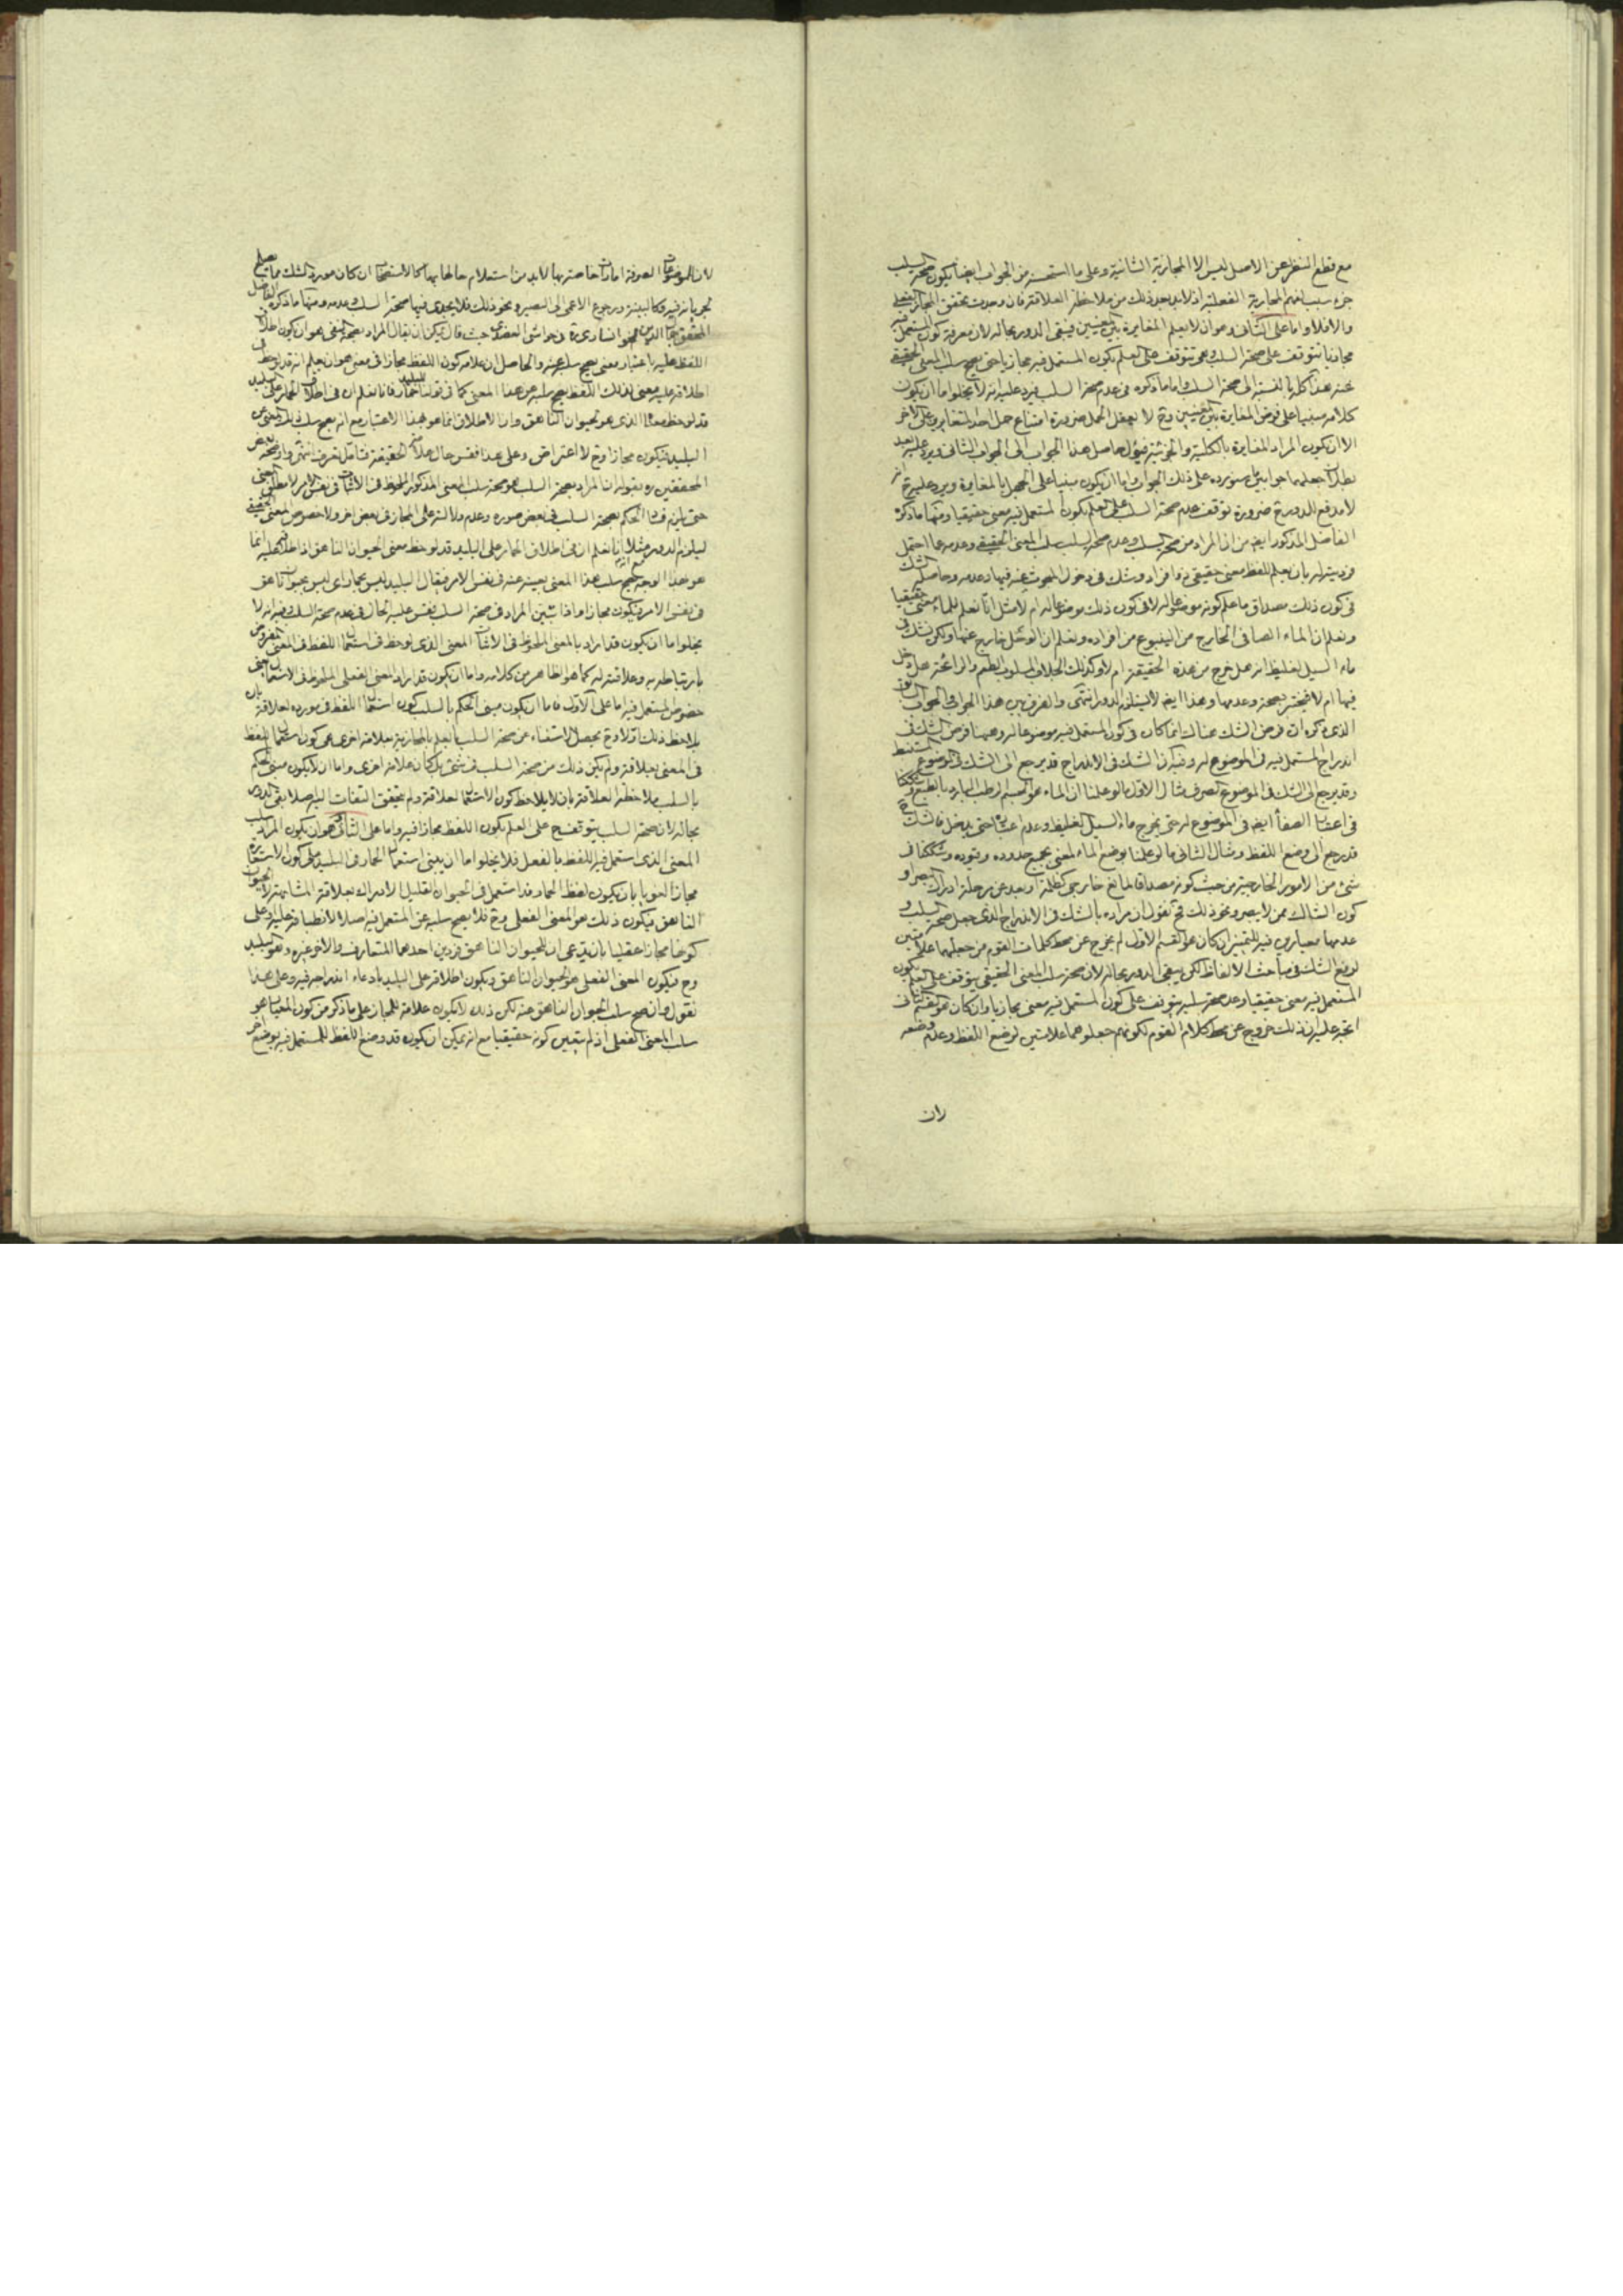 مع قطع النظر عن الاصل ليس الا المجازية الثانية وعلى ما استحسنه من الجواب ايضا يكون صحة السلب
جزء سبب لفهم المجازية الفعلية اذ لا بد بعد ذلك من ملاحظة العلاقة فان وجدت تحقق المجاز الفعلي
والا فلا واما على الثاني وهو ان لا يعلم المغايرة بين المعنيين فيبقى الدور بحاله لان معرفة كون المستعمل فيه
مجازيا تتوقف على صحة السلب وهو تتوقف على العلم بكون المستعمل فيه مجازيا حتى يصح سلب المعنى الحقيقي
عنه هذا كله بالنسبة الى صحة السلب واما ما ذكره في عدم صحة السلب فيرد عليه انه لا يخلوا اما ان يكون
كلامه مبنيا على فرض المغايرة بين المعنيين وح لا يعقل الحمل ضرورة امتناع حمل احد المتغايرين على الاخر
الا ان يكون المراد المغايرة بالكلية والجزئية فيؤل حاصل هذا الجواب الى الجواب الثاني ويرد عليه بعد
جعلهما جوابين ما سنورده على ذلك الجواب واما ان يكون مبنيا على الجهل بالمغايرة ويرد عليه ح انه
لا مدفع للدور ح ضرورة توقف عدم صحة السلب على العلم بكون المستعمل فيه معنى حقيقيا ومنها ما ذكره
الفاضل المذكور ايضا من ان المراد من صحة السلب وعدم صحة السلب سلب المعنى الحقيقي وعدمه عما احتمل
فرديته له بان يعلم للفظ معنى حقيقي ذو افراد وشك في دخول المبحوث عنه فيها وعدمه وحاصله الشك
في كون ذلك مصداق ما علم كونه موضوعا له لا في كون ذلك موضوعا له ام لا مثل انا نعلم للماء معنى حقيقيا
ونعلم ان الماء الصافي الخارج من الينبوع من افراده ونعلم ان الوحل خارج عنها ولكن نشك في
ماء السيل الغليظ انه هل خرج من هذه الحقيقة ام لا وكذلك الجلاب المسلوب الطعم والرائحة هل دخل
فيها ام لا فيختبر بصحته وعدمها وهذا ايضا لا يستلزم الدور انتهى والفرق بين هذا الجواب والجواب السابق
الذي ذكره ان فرض الشك هناك انما كان في كون المستعمل فيه موضوعا له وهيهنا فرض الشك في
اندراج المستعمل فيه في الموضوع له وفيه ان الشك في الاندراج قد يرجع الى الشك في الموضوع المستنبط
وقد يرجع الى الشك في الموضوع الصرف مثال الاول ما لو علمنا ان الماء هو الجسم الرطب البارد بالطبع وشككنا
في اعتبار الصفاء ايضا في الموضوع له حتى يخرج ماء السيل الغليظ وعدم اعتباره حتى يدخل فالشك
قد يرجع الى وضع اللفظ ومثال الثاني ما لو علمنا بوضع الماء لمعنى بجميع حدوده وقيوده وشككنا في
شئ من الامور الخارجية من حيث كونه مصداقا لمانع خارجي كظلمة او بعد عن مرحلة ادراك البصر او
كون الشاك ممن لا يبصر ونحو ذلك فح نقول ان مراده بالشك في الاندراج الذي جعل صحة السلب و
عدمها معيارين فيه للتميز ان كان هو القسم الاول لم يخرج عن محط كلمات القوم من جعلهما علامتين
لرفع الشك في مباحث الالفاظ لكن يبقى الدور بحاله لان صحة سلب المعنى الحقيقي يتوقف على العلم بكون
المستعمل فيه معنى حقيقيا وعدم صحة سلبه يتوقف على كون المستعمل فيه معنى مجازيا وان كان هو القسم الثاني
اتجه عليه ان ذلك خروج عن محط كلام القوم لكونهم جعلوهما علامتين لوضع اللفظ وعدم وضعه
لان
لان الموضوعات الصرفة امارات خاصة بها لا بد من استعلام حالها بها كالاستصحاب ان كان مورد الشك مما يصلح
لجريانه فيه وكالبينة ورجوع الاعمى الى البصير ونحو ذلك فلا يجدي فيها صحة السلب وعدمه ومنها ما ذكره الفاضل
المحقق جمال الدين الخوانساري ره في حواشي العضدي حيث قال يمكن ان يقال المراد بصحة النفي هو ان يكون اطلاق
اللفظ عليه باعتبار معنى يصح سلبه عنه والحاصل ان علامة كون اللفظ مجازا في معنى هو ان يعلم انه قد لوحظ في
اطلاقه عليه معنى لذلك اللفظ يصح سلبه عن هذا المعنى كما في قولنا للبليد حمار فانا نعلم ان في اطلاق الحمار على البليد
قد لوحظ معناه الذي هو الحيوان الناهق وان الاطلاق انما هو بهذا الاعتبار مع انه يصح سلب هذا المعنى عن
البليد فيكون مجازا وح لا اعتراض وعلى هذا فقس حال علامة الحقيقة فتامل تعرف انتهى واوضحه بعض
المحققين ره بقوله ان المراد بصحة السلب هو صحة سلب المعنى المذكور الملحوظ في الاثبات في نفس الامر لا مطلق المعنى
حتى يلزم فساد الحكم بصحة السلب في بعض صوره وعدم دلالته على المجاز في بعض اخر ولا خصوص المعنى الحقيقي
ليلزم الدور مثلا انا نعلم ان في اطلاق الحمار على البليد قد لوحظ معنى الحيوان الناهق اذ اطلاقه عليه انما
هو بهذا الوجه مع انه يصح سلب هذا المعنى بعينه عنه في نفس الامر فيقال البليد ليس بحمار اي ليس بحيوان ناهق
في نفس الامر فيكون مجازا واذا تبين المراد في صحة السلب فقس عليه الحال في عدم صحة السلب وفيه انه لا
يخلوا اما ان يكون قد اراد بالمعنى الملحوظ في الاثبات المعنى الذي لوحظ في استعمال اللفظ في المعنى المعروض
بارتباطه به وعلاقته له كما هو الظاهر من كلامه واما ان يكون قد اراد المعنى الفعلي الملحوظ في الاستعمال اعنى
خصوص المستعمل فيه اما على الاول فاما ان يكون مبنى الحكم بالسلب كون استعمال اللفظ في مورده لعلاقة بان
يلاحظ ذلك اولا وح يحصل الاستغناء عن صحة السلب بالعلم بالمجازية بعلامة اخرى هي كون استعمال اللفظ
في المعنى بعلاقة ولم يكن ذلك من صحة السلب في شئ بل كان علامة اخرى واما ان لا يكون مبنى الحكم
بالسلب ملاحظة العلاقة بان لا يلاحظ كون الاستعمال لعلاقة ولم يتحقق التفات اليه اصلا بقى الدور
بحاله لان صحة السلب يتوقف ح على العلم بكون اللفظ مجازا فيه واما على الثاني وهو ان يكون المراد سلب
المعنى الذي استعمل فيه اللفظ بالفعل فلا يخلوا اما ان يبنى استعمال الحمار في البليد على كون الاستعارة
مجازا لغويا بان يكون لفظ الحمار قد استعمل في الحيوان القليل الادراك بعلاقة المشابهة لا الحيوان
الناهق فيكون ذلك هو المعنى الفعلي وح فلا يصح سلبه عن المستعمل فيه اصلا لانطباقه عليه او على
كونها مجازا عقليا بان يدعى ان للحيوان الناهق فردين احدهما المتعارف والاخر غيره وهو البليد
وح فيكون المعنى الفعلي هو الحيوان الناهق ويكون اطلاقه على البليد بادعاء اندراجه فيه وعلى هذا
نقول وان صح سلب الحيوان الناهق عنه لكن ذلك لا يكون علامة للمجاز على ما ذكر من كون المعيار هو
سلب المعنى الفعلي اذ لم يتبين كونه حقيقيا مع انه يمكن ان يكون قد وضع اللفظ للمستعمل فيه بوضع اخر